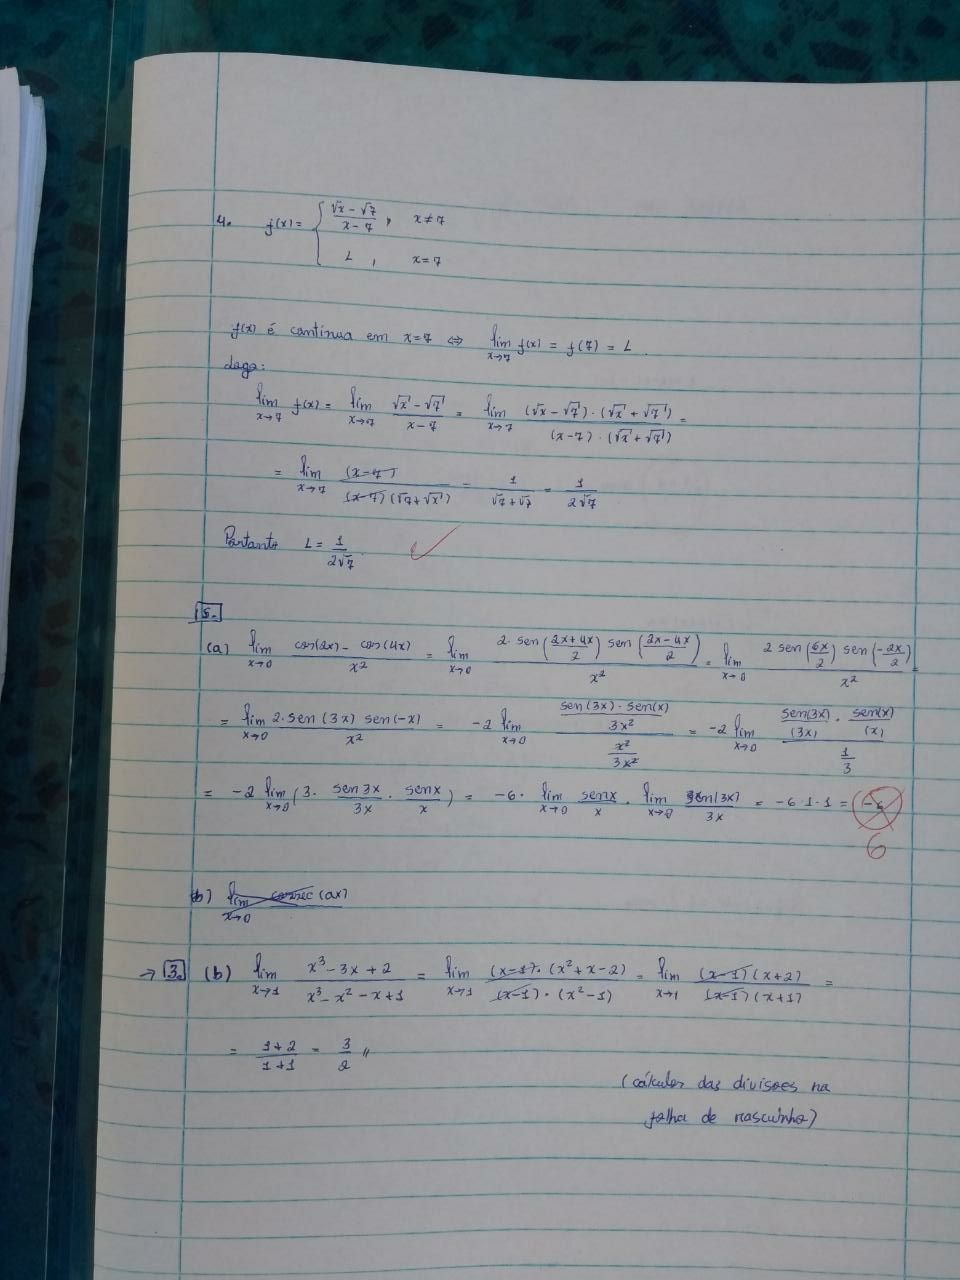 4. f(x) = { (√x − √7)/(x − 7) , x ≠ 7
L , x = 7
f(x) é contínua em x=7 ⇔ lim x→7 f(x) = f(7) = L.
Logo:
lim x→7 f(x) = lim x→7 (√x − √7)/(x − 7) = lim x→7 ((√x − √7)·(√x + √7))/((x−7)·(√x + √7)) =
= lim x→7 (x−7)/((x−7)(√7+√x)) = 1/(√7+√7) = 1/(2√7)
Portanto L = 1/(2√7) ✓
5.
(a) lim x→0 (cos(2x) − cos(4x))/x² = lim x→0 (2·sen((2x+4x)/2) sen((2x−4x)/2))/x² = lim x→0 (2 sen(6x/2) sen(−2x/2))/x² =
= lim x→0 (2·sen(3x) sen(−x))/x² = −2 lim x→0 ((sen(3x)·sen(x))/3x²)/(x²/3x²) = −2 lim x→0 (sen(3x)/(3x) · sen(x)/(x))/(1/3)
= −2 lim x→0 (3 · sen3x/3x · senx/x) = −6 · lim x→0 senx/x · lim x→0 sen(3x)/3x = −6·1·1 = −6
6
(b) lim x→0 (ax)
→ 3. (b) lim x→1 (x³ − 3x + 2)/(x³ − x² − x + 1) = lim x→1 ((x−1)·(x²+x−2))/((x−1)·(x²−1)) = lim x→1 ((x−1)(x+2))/((x−1)(x+1)) =
= (1+2)/(1+1) = 3/2 //
(cálculos das divisões na
folha de rascunho)